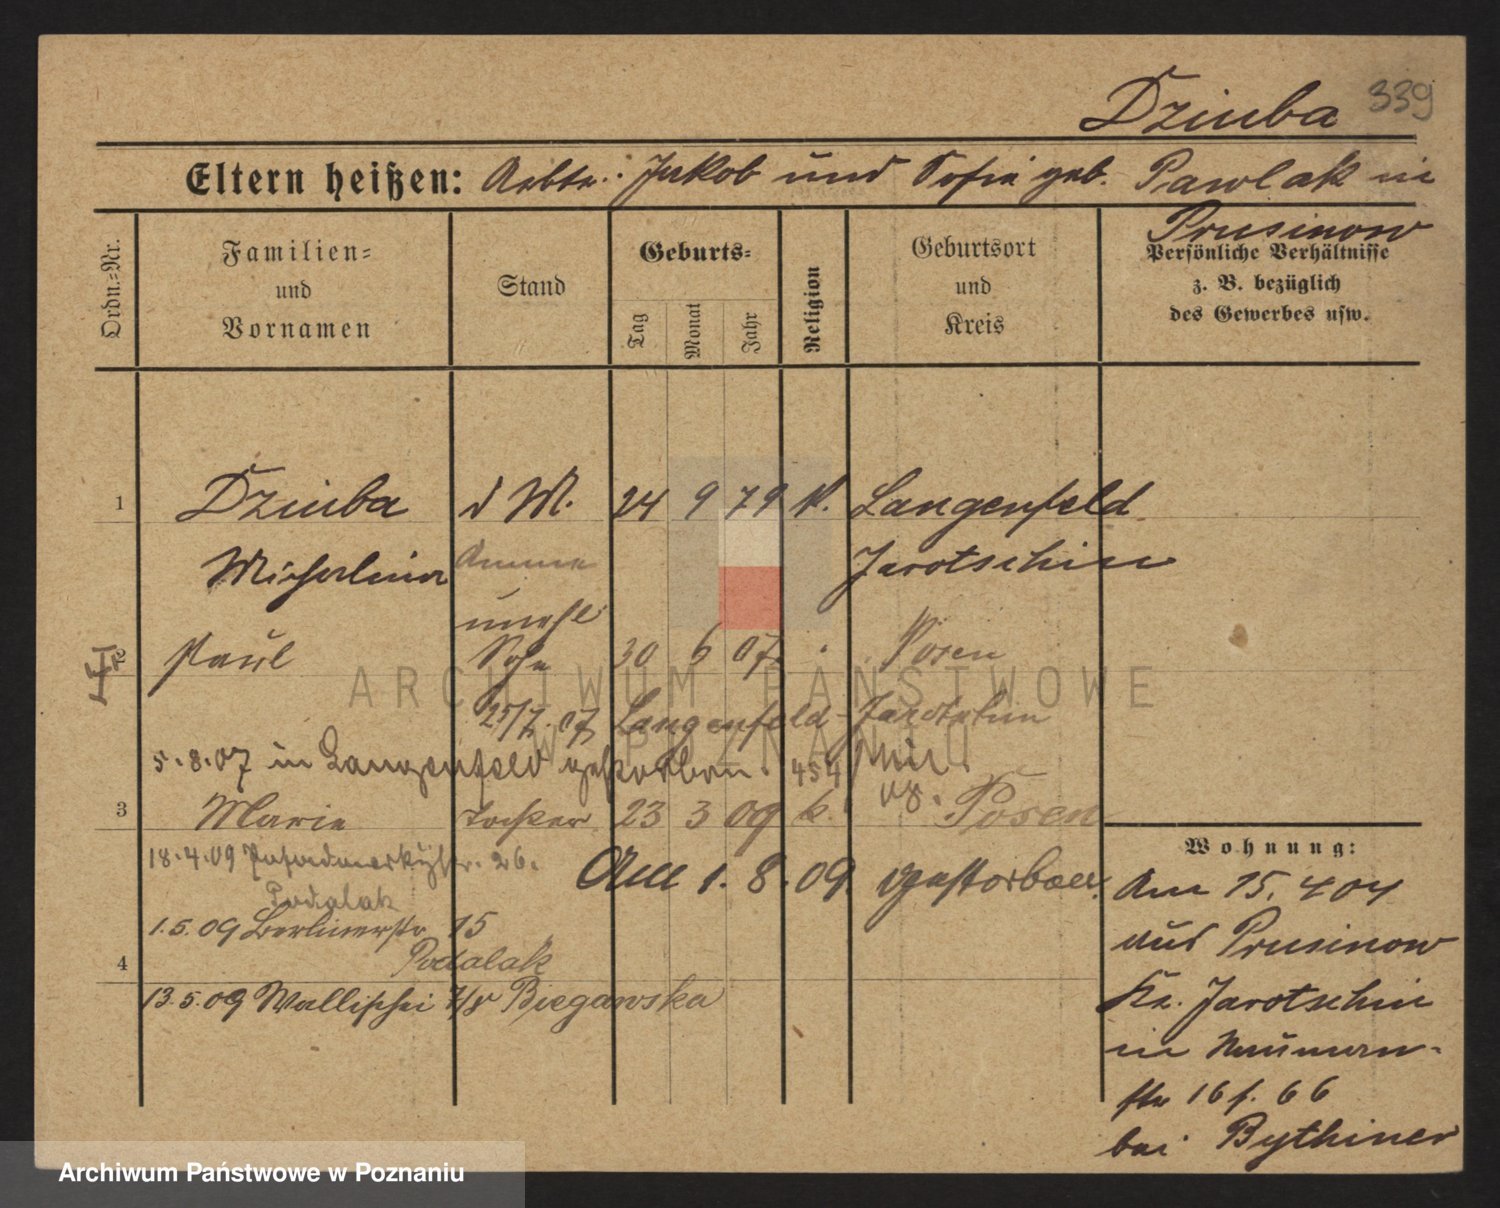 Dziuba 339
Eltern heißen: Arbtr.: Jakob und Sofie geb. Pawlak in
Prusinow
Ordn.-Nr.
Familien- und Vornamen
Stand
Geburts-
Tag Monat Jahr
Religion
Geburtsort und Kreis
Persönliche Verhältnisse
z. B. bezüglich
des Gewerbes usw.
1 Dziuba d M. 24 9 79 K. Langenfeld
Michalina Amme Jarotschin
unehl
2 Paul Sohn 30 6 07 Posen
25/7. 07 Langenfeld - Jarotschin
5.8.07 in Langenfeld gestorben. 454
3 Marie Tochter 23 3 09 k. Posen
18.4.09 26.
Podalak
Am 1. 8. 09 gestorben.
1.5.09 Berlinerstr 15
Podalak
4
13.5.09 Wallischei 7/8 Biegawska
Wohnung:
Am 15. 4 04
aus Prusinow
Kr. Jarotschin
in Nauman-
str 16 f. 66
bei Bythiner
ARCHIWUM PAŃSTWOWE
W POZNANIU
Archiwum Państwowe w Poznaniu